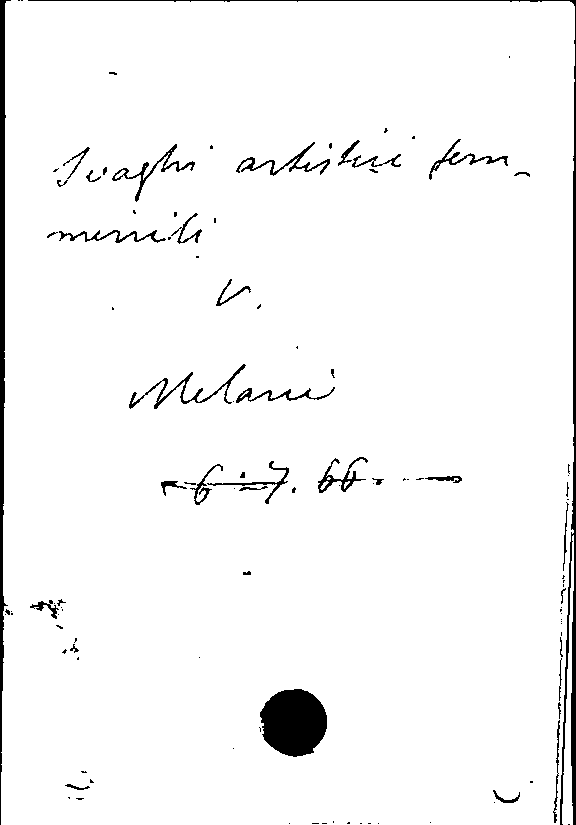 Svaghi artistici fem-
minili
V.
Melani
6.7.66.